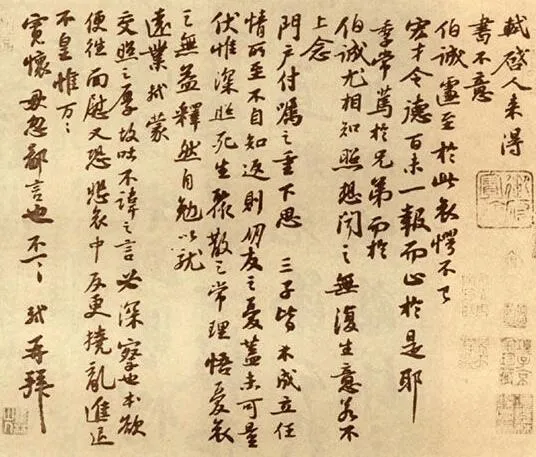 軾啓人来得
書不意
伯誠遽至於此哀愕不已
宏才令德百未一報而止於是耶
季常篤於兄弟而於
伯誠尤相知照想聞之無復生意若不
上念
門户付嘱之重下思三子皆未成立任
情所至不自知返則朋友之憂蓋未可量
伏惟深照死生聚散之常理悟憂哀
之無益釋然自勉以就
遠業軾蒙
交照之厚故吐不諱之言必深察也本欲
便往面慰又恐悲哀中反更撓亂進退
不皇惟万万
寛懷毋忽鄙言也不一一軾再拜